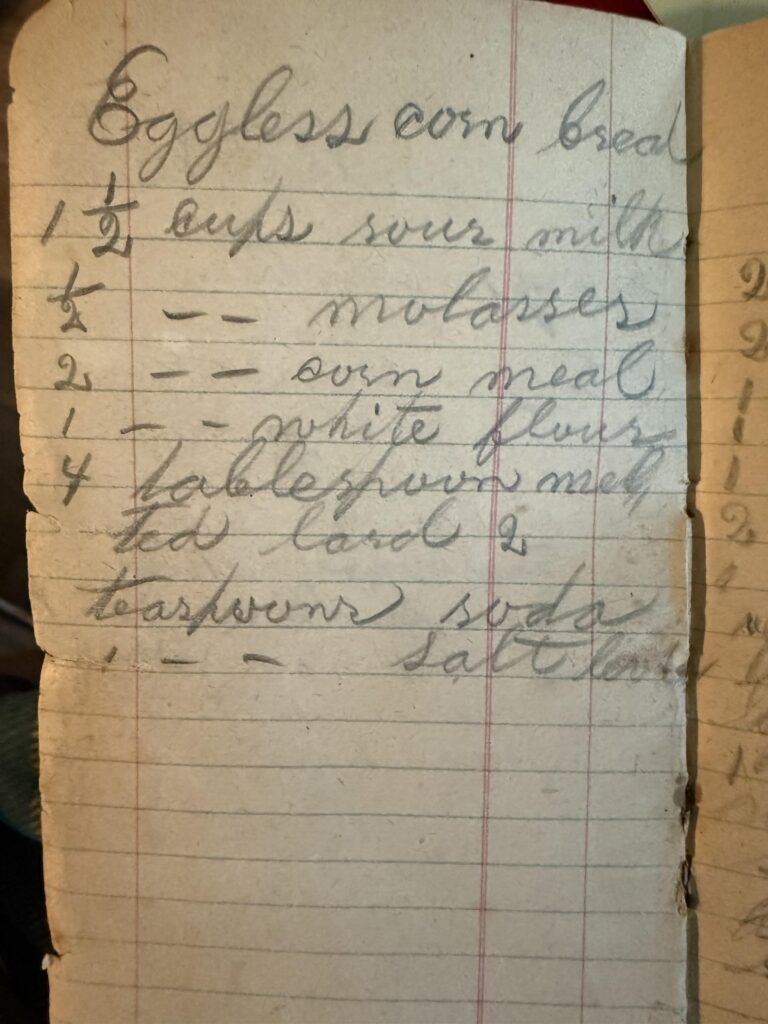 Eggless corn bread
1 1/2 cups sour milk
1/2 – – molasses
2 – – corn meal
1 – – white flour
4 tablespoon mel,
ted lard 2
teaspoons soda
1 – – salt
2
2
1
1
1
2